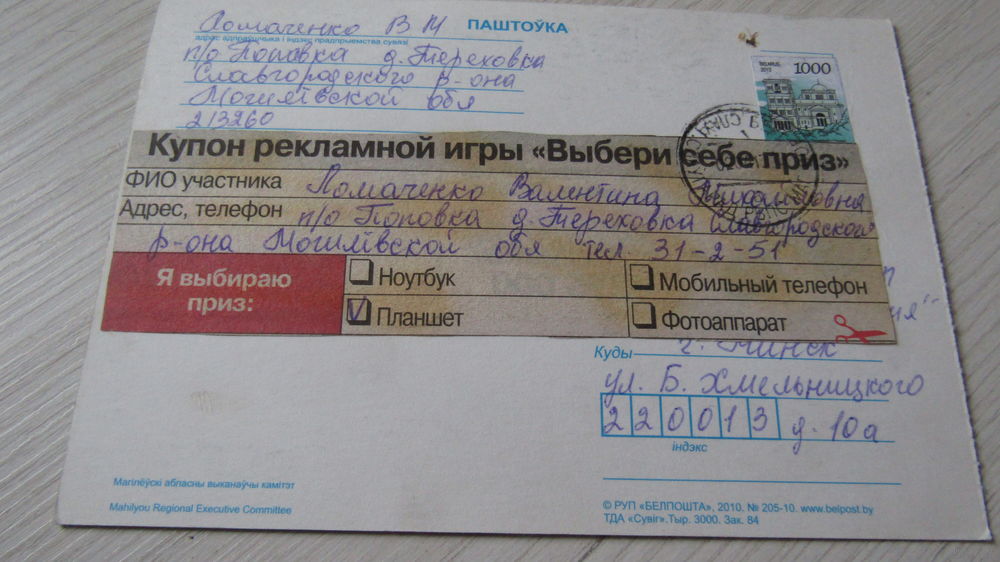 Ломаченко В М
ПАШТОЎКА
адрас адпраўшчыка і індэкс прадпрыемства сувязі
п/о Поповка д. Тереховка
Славгородского р-она
Могилёвской обл
213260
BELARUS
1000
Купон рекламной игры «Выбери себе приз»
ФИО участника Ломаченко Валентина
Адрес, телефон п/о Поповка д. Тереховка Славгородского
р-она Могилёвской обл тел. 31-2-51
Я выбираю
приз:
Ноутбук
Мобильный телефон
Планшет
Фотоаппарат
Куды г. Минск
ул. Б. Хмельницкого
220013 д. 10а
індэкс
Магілёўскі абласны выканаўчы камітэт
Mahilyou Regional Executive Committee
© РУП «БЕЛПОШТА», 2010. № 205-10. www.belpost.by
ТДА «Сувіг».Тыр. 3000. Зак. 84